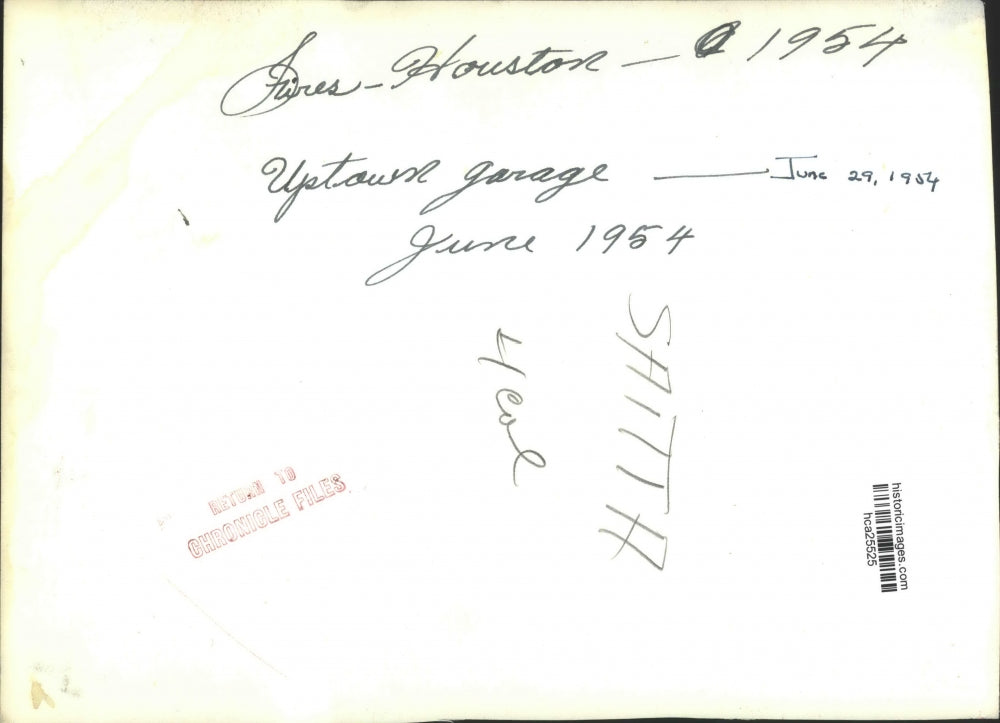 Fires - Houston - 1954
Uptown garage — June 29, 1954
June 1954
4 col
RETURN TO
CHRONICLE FILES
historicimages.com
hca25525